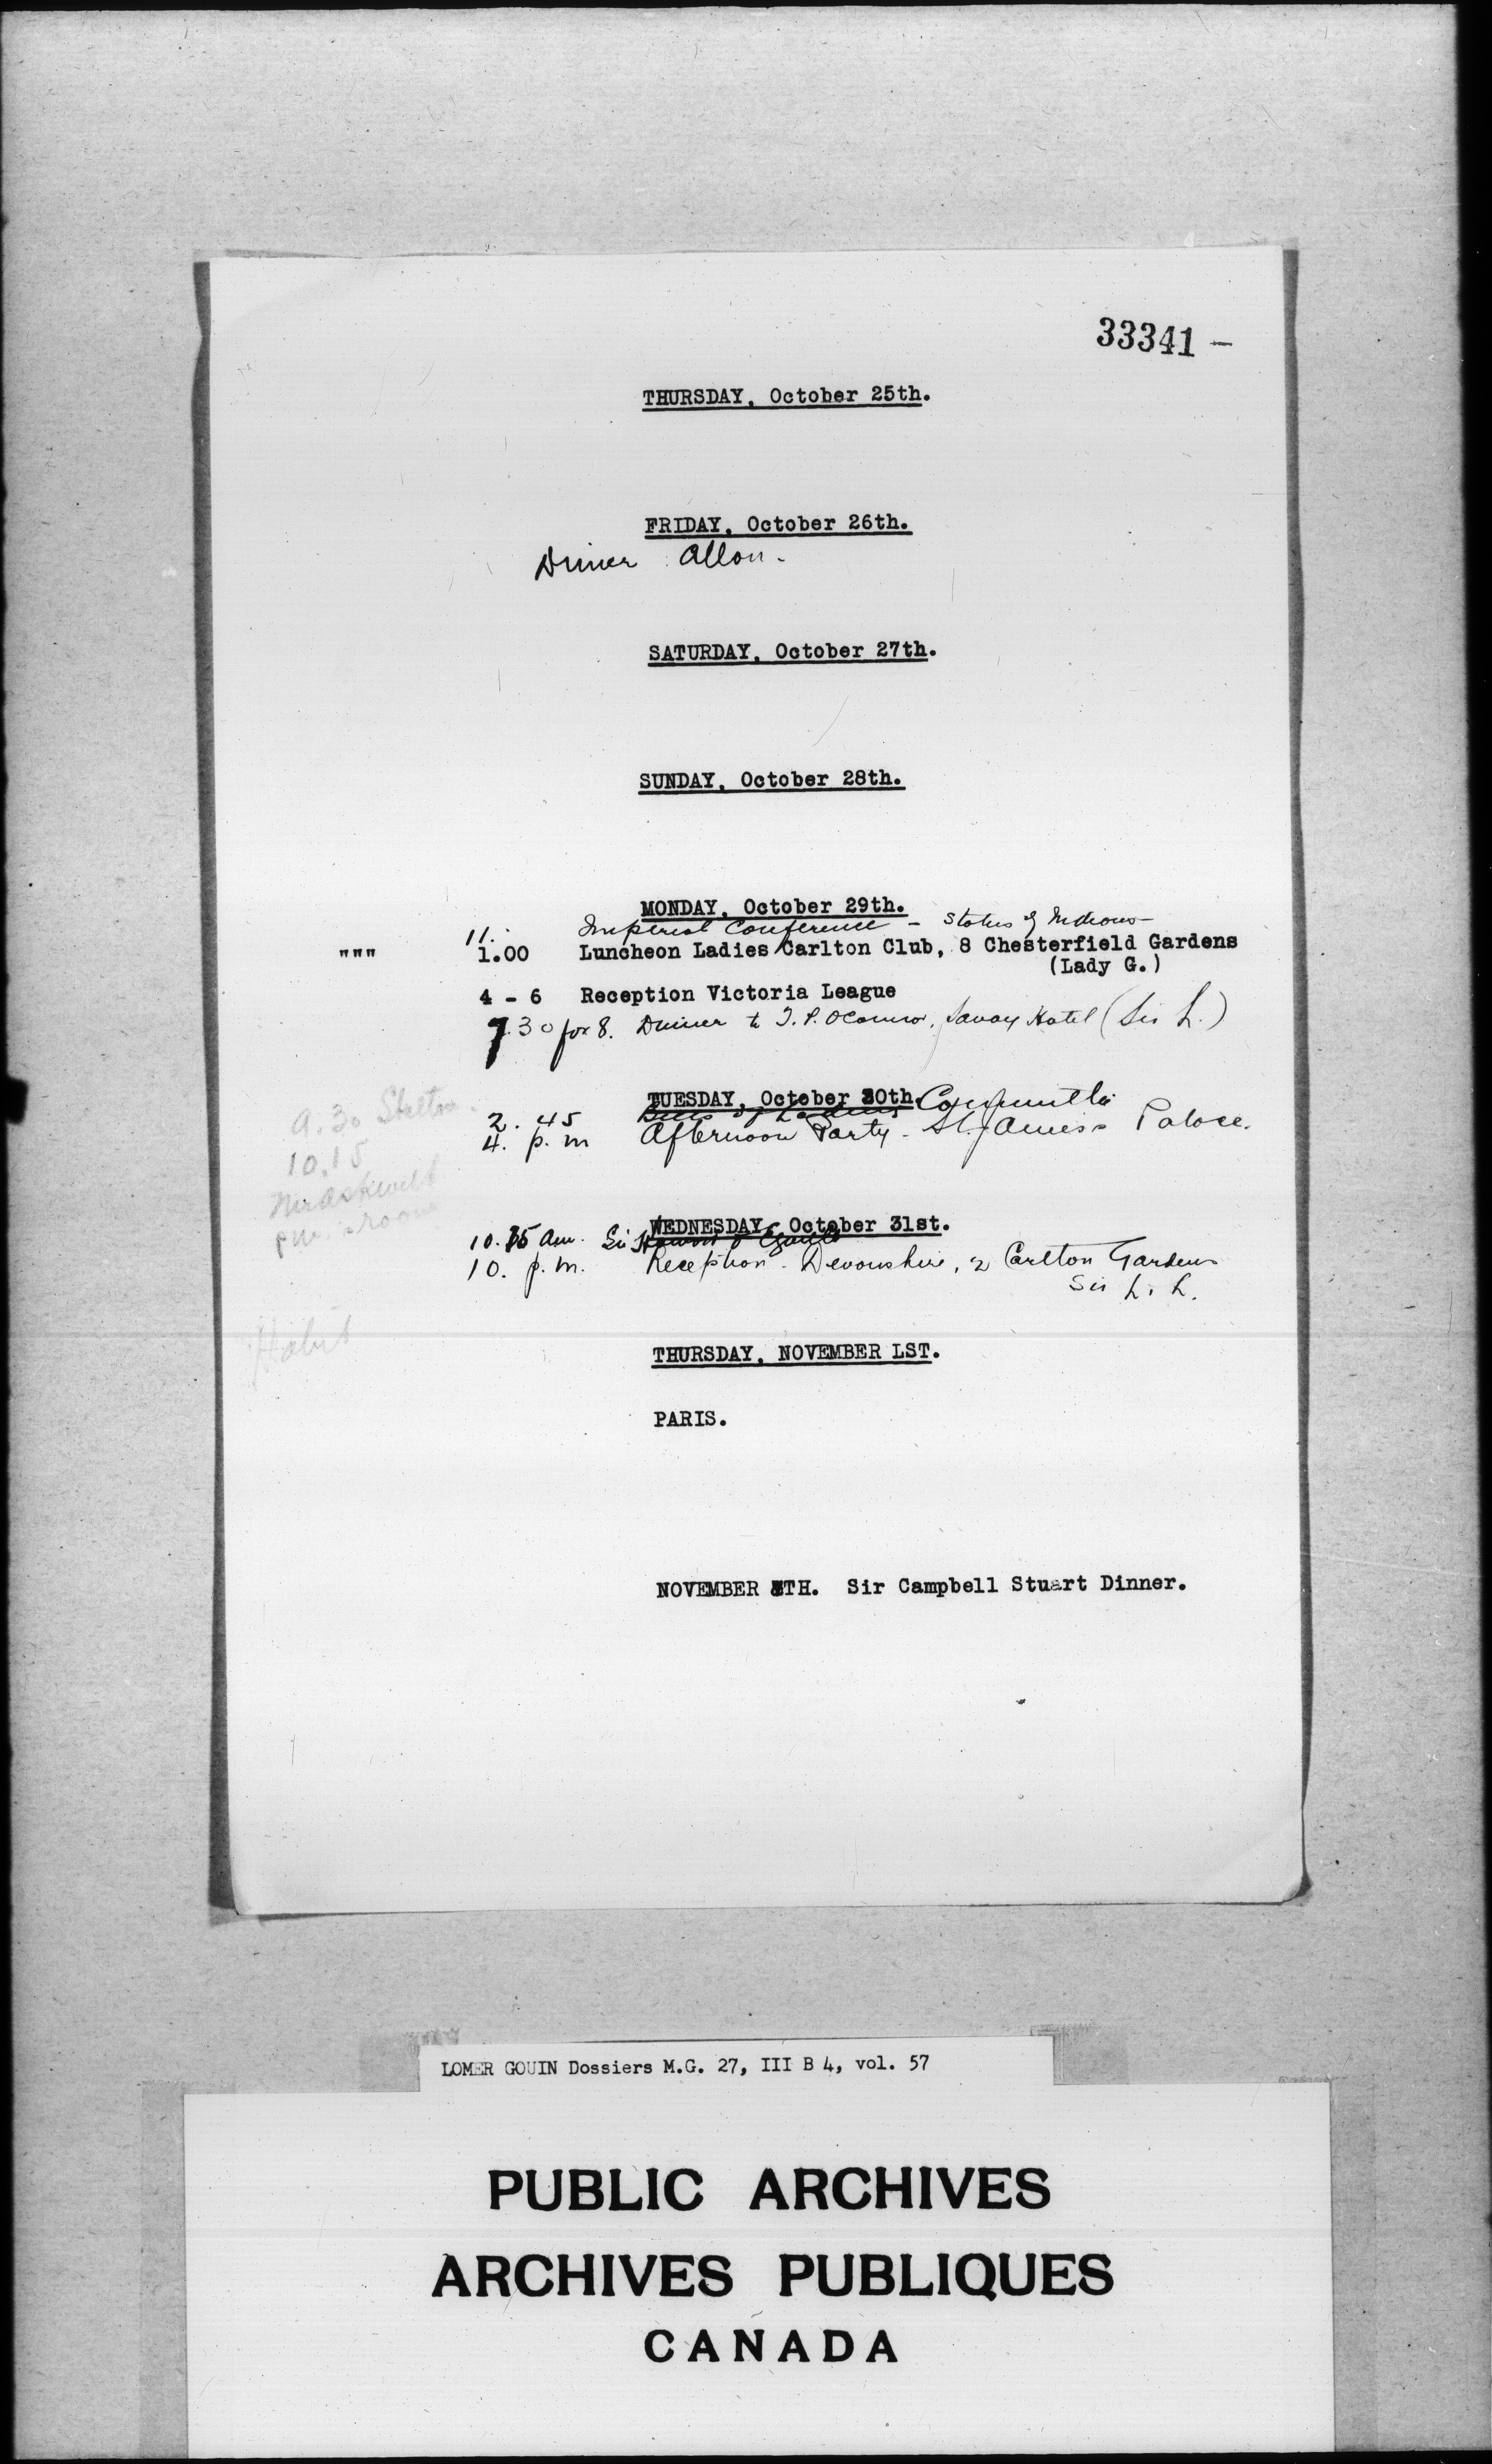 33341 -
THURSDAY, October 25th.
FRIDAY, October 26th.
Dinner Allon -
SATURDAY, October 27th.
SUNDAY, October 28th.
MONDAY, October 29th.
11. Imperial Conference - Status of Indians -
""" 1.00 Luncheon Ladies Carlton Club, 8 Chesterfield Gardens
(Lady G.)
4 - 6 Reception Victoria League
7.30 for 8. Dinner to T. P. OConnor, Savoy Hotel (Sir L.)
TUESDAY, October 30th.
2.45 Bills of Lading Committee
4. p.m Afternoon Party - St. James's Palace.
9.30
10.15
WEDNESDAY, October 31st.
10.15 am. Sir
10. p.m. Reception - Devonshire, 2 Carlton Gardens
Sir L. L.
THURSDAY, NOVEMBER LST.
PARIS.
NOVEMBER 8TH. Sir Campbell Stuart Dinner.
LOMER GOUIN Dossiers M.G. 27, III B 4, vol. 57
PUBLIC ARCHIVES
ARCHIVES PUBLIQUES
CANADA